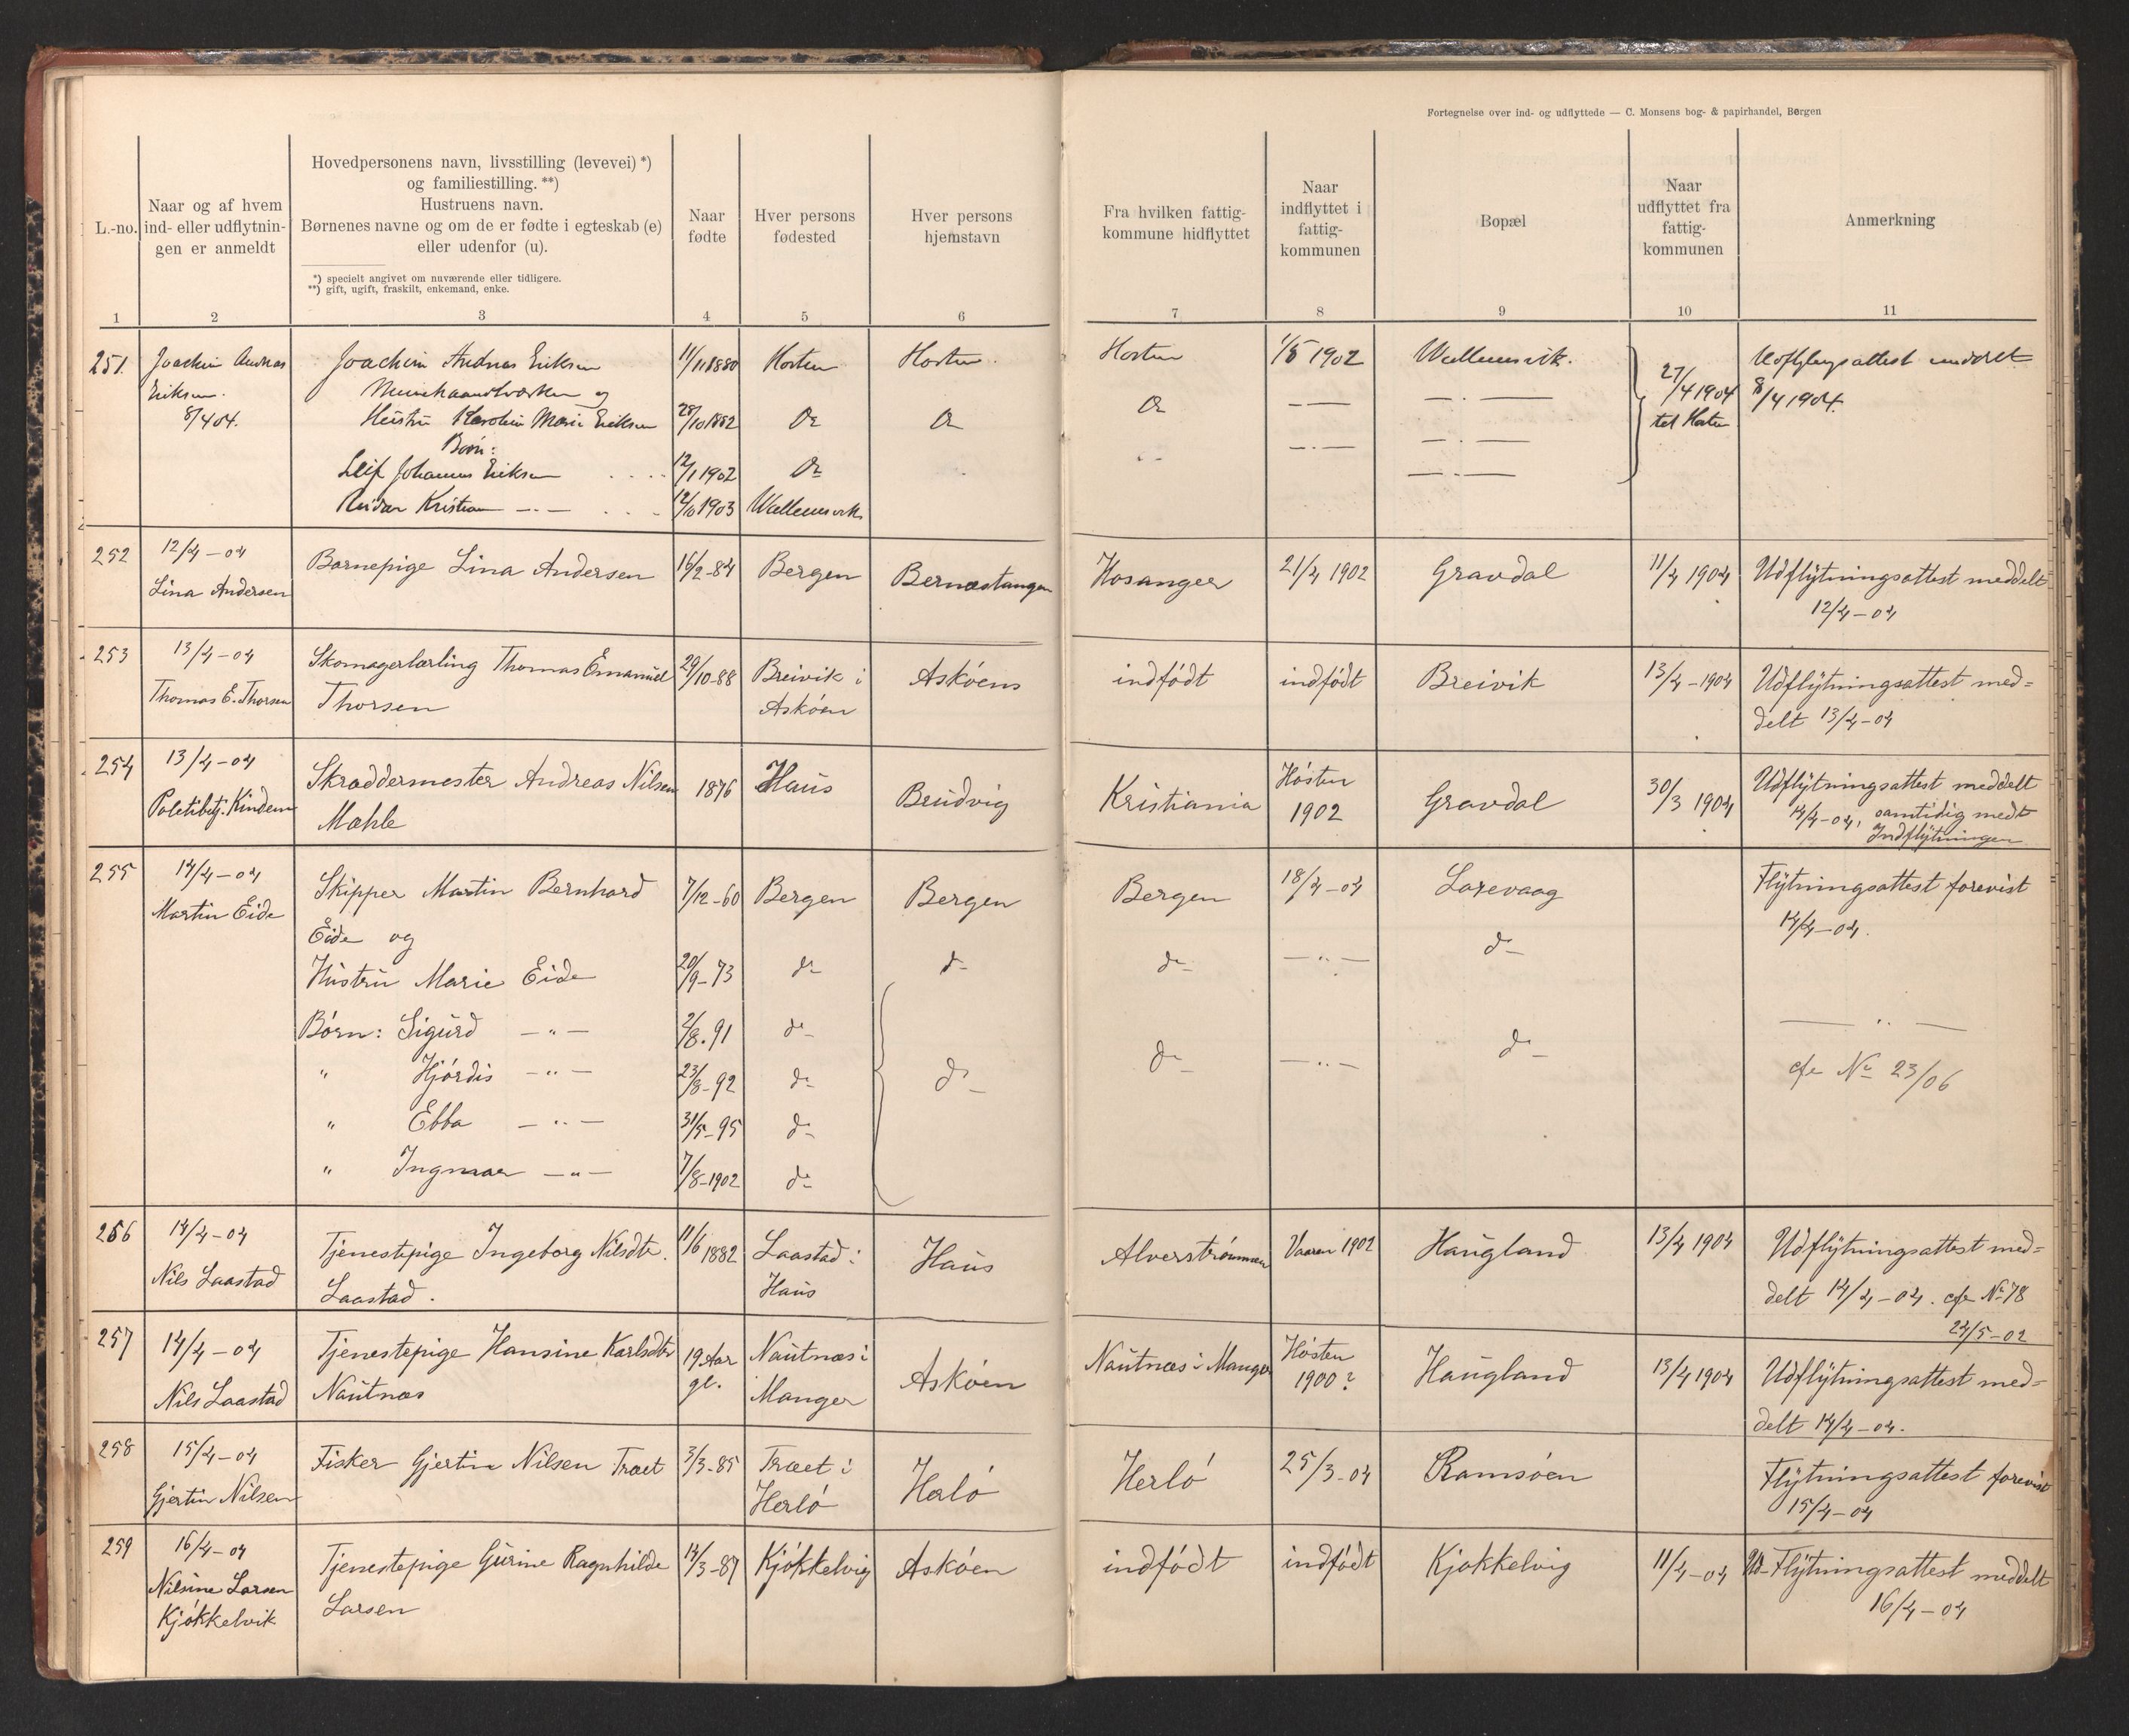 Fortegnelse over ind- og udflyttede — C. Monsens bog- & papirhandel, Bergen
L.-no.
Naar og af hvem
ind- eller udflytnin-
gen er anmeldt
Hovedpersonens navn, livsstilling (levevei) *)
og familiestilling. **)
Hustruens navn.
Børnenes navne og om de er fødte i egteskab (e)
eller udenfor (u).
*) specielt angivet om nuværende eller tidligere.
**) gift, ugift, fraskilt, enkemand, enke.
Naar
fødte
Hver persons
fødested
Hver persons
hjemstavn
Fra hvilken fattig-
kommune hidflyttet
Naar
indflyttet i
fattig-
kommunen
Bopæl
Naar
udflyttet fra
fattig-
kommunen
Anmerkning
1 2 3 4 5 6 7 8 9 10 11
251. Joachim Andreas Joachim Andreas Eriksen 11/11 1880 Horten Horten. Horten 1/5 1902 Wallemsvik.
Eriksen. og 27/4 1904 8/4 1904.
8/4 04. Hustru Karolin Marie Eriksen 28/10 1882 Do Do Do — — — . — til Horten
Børn:
Leif Johannes Eriksen 12/1 1902 Do
Reidar Kristian — . — 12/10 1903 Wallemsvik
252 12/4 – 04 Barnepige Lina Andersen 16/2-84 Bergen Bernestangen Hosanger 21/4 1902 Gravdal 11/4 1904 Udflytningsattest meddelt
Lina Andersen 12/4 – 04
253 13/4 – 04 Skomagerlærling Thomas Emanuel 29/10-88 Breivik i Askøens indfødt indfødt Breivik 13/4 – 1904 Udflytningsattest med=
Thomas E. Thorsen Thorsen Askøen delt 13/4 – 04
254 13/4 – 04 Skræddermester Andreas Nilsen 1876 Haus Brudvig Kristiania Høsten Gravdal 30/3 1904 Udflytningsattest meddelt
Politibtj. Kindem Mæhle 1902 14/4-04, samtidig medt
Indflytningen
255 14/4 – 04 Skipper Martin Bernhard 7/12-60 Bergen Bergen Bergen 18/4 – 04 Larevaag Flytningsattest forevist
Martin Eide Eide og 14/4 – 04.
Hustru Marie Eide 20/9-73 do do do — " — do
Børn: Sigurd — " — 2/8. 91 do
" Hjørdis — " — 23/8-92 do do do — " — do cfr No 23/06
" Ebba — " — 31/5-95 do
" Ingmar — " — 7/8-1902 do
256 14/4 – 04 Tjenestepige Ingeborg Nilsdtr. 11/6 1882 Laastad i Haus Alverstrømmen Vaaren 1902 Haugland 13/4 1904 Udflytningsattest med=
Nils Laastad Laastad. Haus delt 14/4 – 04. cfr No 78
24/5-02
257 14/4 – 04 Tjenestepige Hansine Karlsdtr 19 Aar Nautnæs i Askøen Nautnæs i Manger Høsten Haugland 13/4 1904 Udflytningsattest med=
Nils Laastad Nautnæs gl. Manger 1900? delt 14/4 – 04.
258 15/4 – 04 Fisker Gjertin Nilsen Træet 3/3-85 Træet i Herlø Herlø 25/3-04 Ramsøen Flytningsattest forevist
Gjertin Nilsen Herlø 15/4 – 04
259 16/4 – 04 Tjenestepige Gurine Ragnhilde 14/3-87 Kjøkkelvig Askøen indfødt indfødt Kjøkkelvig 11/4 – 04 Ud-Flytningsattest meddelt
Nilsine Larsen Larsen 16/4 – 04
Kjøkkelvik